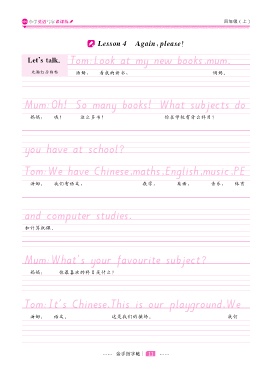 四年级（上）
Lesson 4 Again, please!
Let's talk.
Tom: Look at my new books, mum.
汤姆： 看我的新书， 妈妈。
Mum: Oh! So many books! What subjects do
妈妈： 哦！ 这么多书！ 你在学校有什么科目？
you have at school?
Tom: We have Chinese, maths, English, music, PE
汤姆： 我们有语文， 数学， 英语， 音乐， 体育
and computer studies.
和计算机课。
Mum: What's your favourite subject?
妈妈： 你最喜欢的科目是什么？
Tom: It's Chinese. This is our playground. We
汤姆： 语文。 这是我们的操场。 我们
11